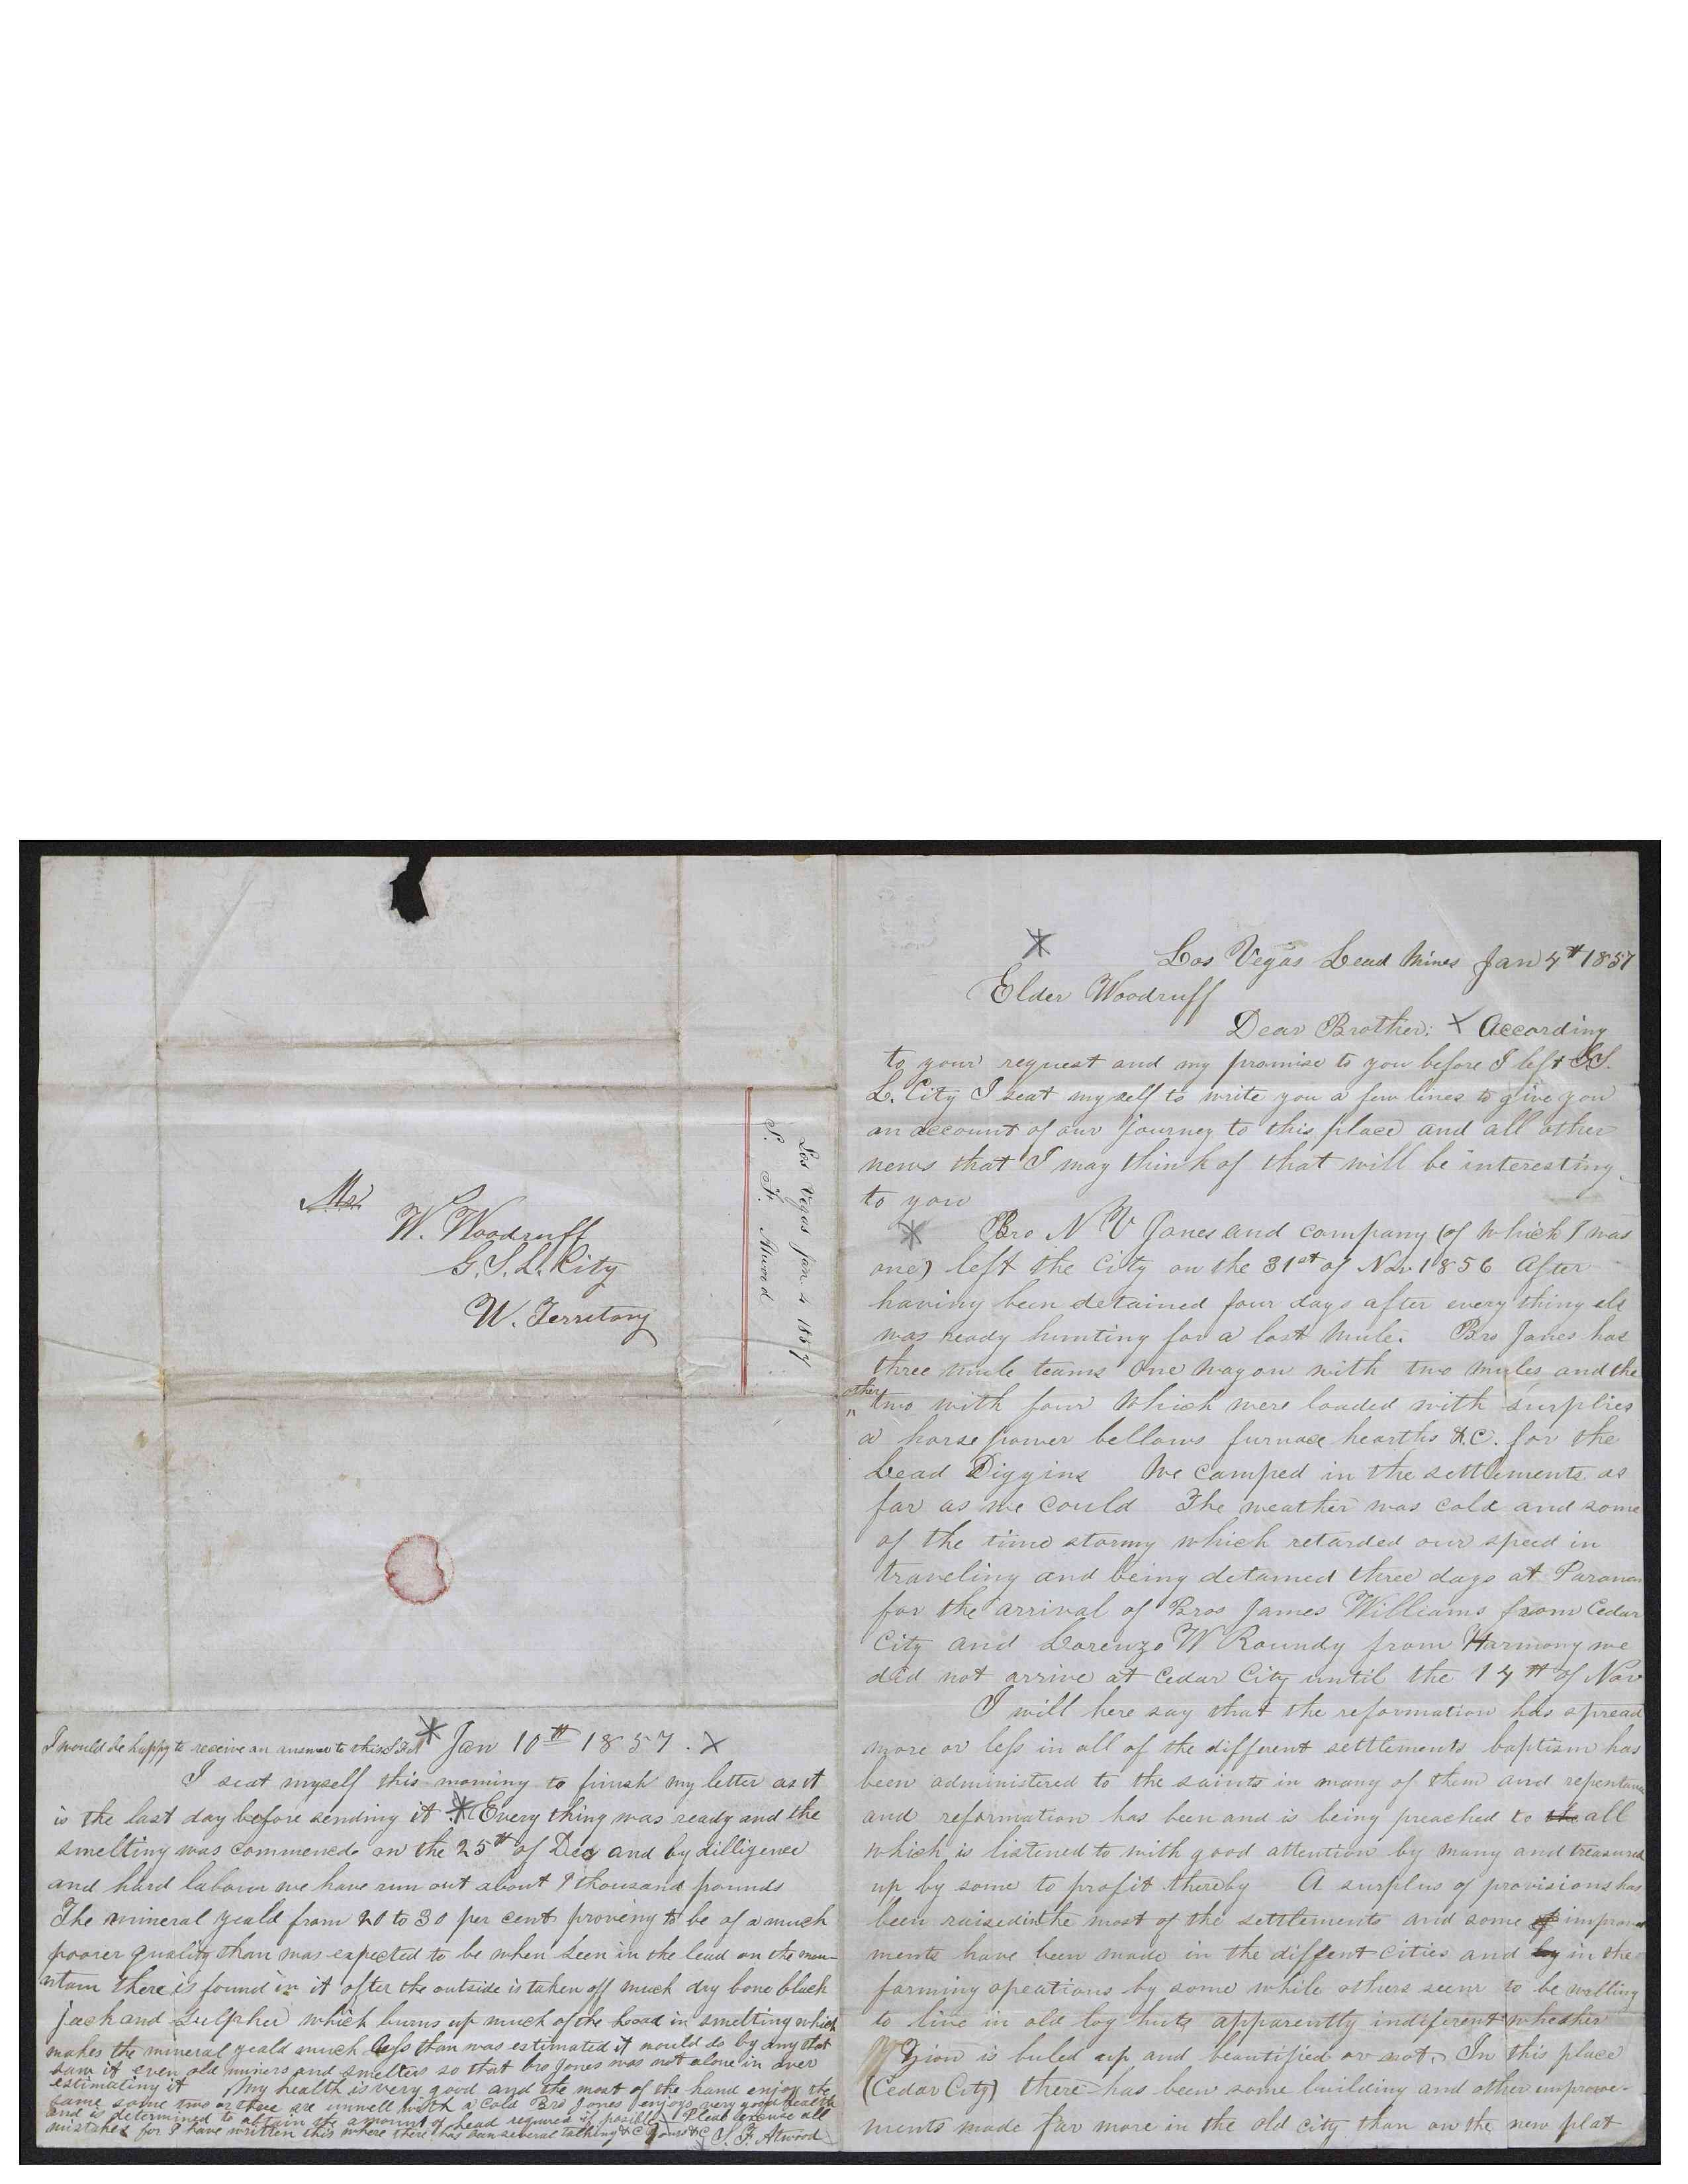 Los Vegas Lead Mines Jan 4th 1857
Elder Woodruff
Dear Brother: X According
to your request and my promise to you before I left G.S.
L. City I seat myself to write you a few lines to give you
an account of our journey to this place and all other
news that I may think of that will be interesting
to you
Bro N V Jones and company (of which I was
one) left the City on the 31st of Nov. 1856 After
having been detained four days after every thing els
was ready hunting for a lost mule. Bro Jones has
three mule teams One wagon with two mules and the
other two with four which were loaded with surplies
a horse power bellows furnace hearths &.C. for the
Lead Diggins We camped in the settlements as
far as we could The weather was cold and some
of the time stormy which retarded our speed in
traveling and being detained three days at Parowan
for the arrival of Bros James Williams from Cedar
City and Lorenzo W Roundy from Harmony we
did not arrive at Cedar City until the 14th of Nov
I will here say that the reformation has spread
more or less in all of the different settlements baptism has
been administered to the saints in many of them and repentance
and reformation has been and is being preached to the all
which is listened to with good attention by many and treasured
up by some to profit thereby A surplus of provisions has
been raised in the most of the settlements and some of improve
ments have been made in the diffent cities and by in the
farming opeations by some while others seem to be willing
to live in old log huts apparently indiferent whether
Zion is buled up and beautified or not. In this place
(Cedar City) there has been some building and other improve-
ments made far more in the old city than on the new plat
Los Vegas Jan. 4 1857
S. F. Atwood
Mr
W. Woodruff
G.S.L. City
U. Territory
I would be happy to receive an answer to this S.F.A
Jan 10th 1857. X
I seat myself this morning to finish my letter as it
is the last day before sending it Every thing was ready and the
smelting was commenced on the 25th of Dec and by dilligence
and hard labour we have run out about 9 thousand pounds
The mineral yeald from 20 to 30 per cent proveing to be of a much
poorer quality than was expected to be when seen in the lead on the mou-
ntain there is found in it after the outside is taken off much dry bone black
jack and sulpher which burns up much of the Lead in smelting which
makes the mineral yeald much less than was estimated it would do by any that
saw it even old miners and smelters so that bro Jones was not alone in over
estimating it My health is very good and the most of the hand enjoy the
same some two or three are unwell with a cold Bro Jones enjoys very good health
and is determined to obtain the amount of lead required if posible X Pleas excuse all
mistakes for I have written this where there has bean several talking &C Yours &C S. F. Atwood